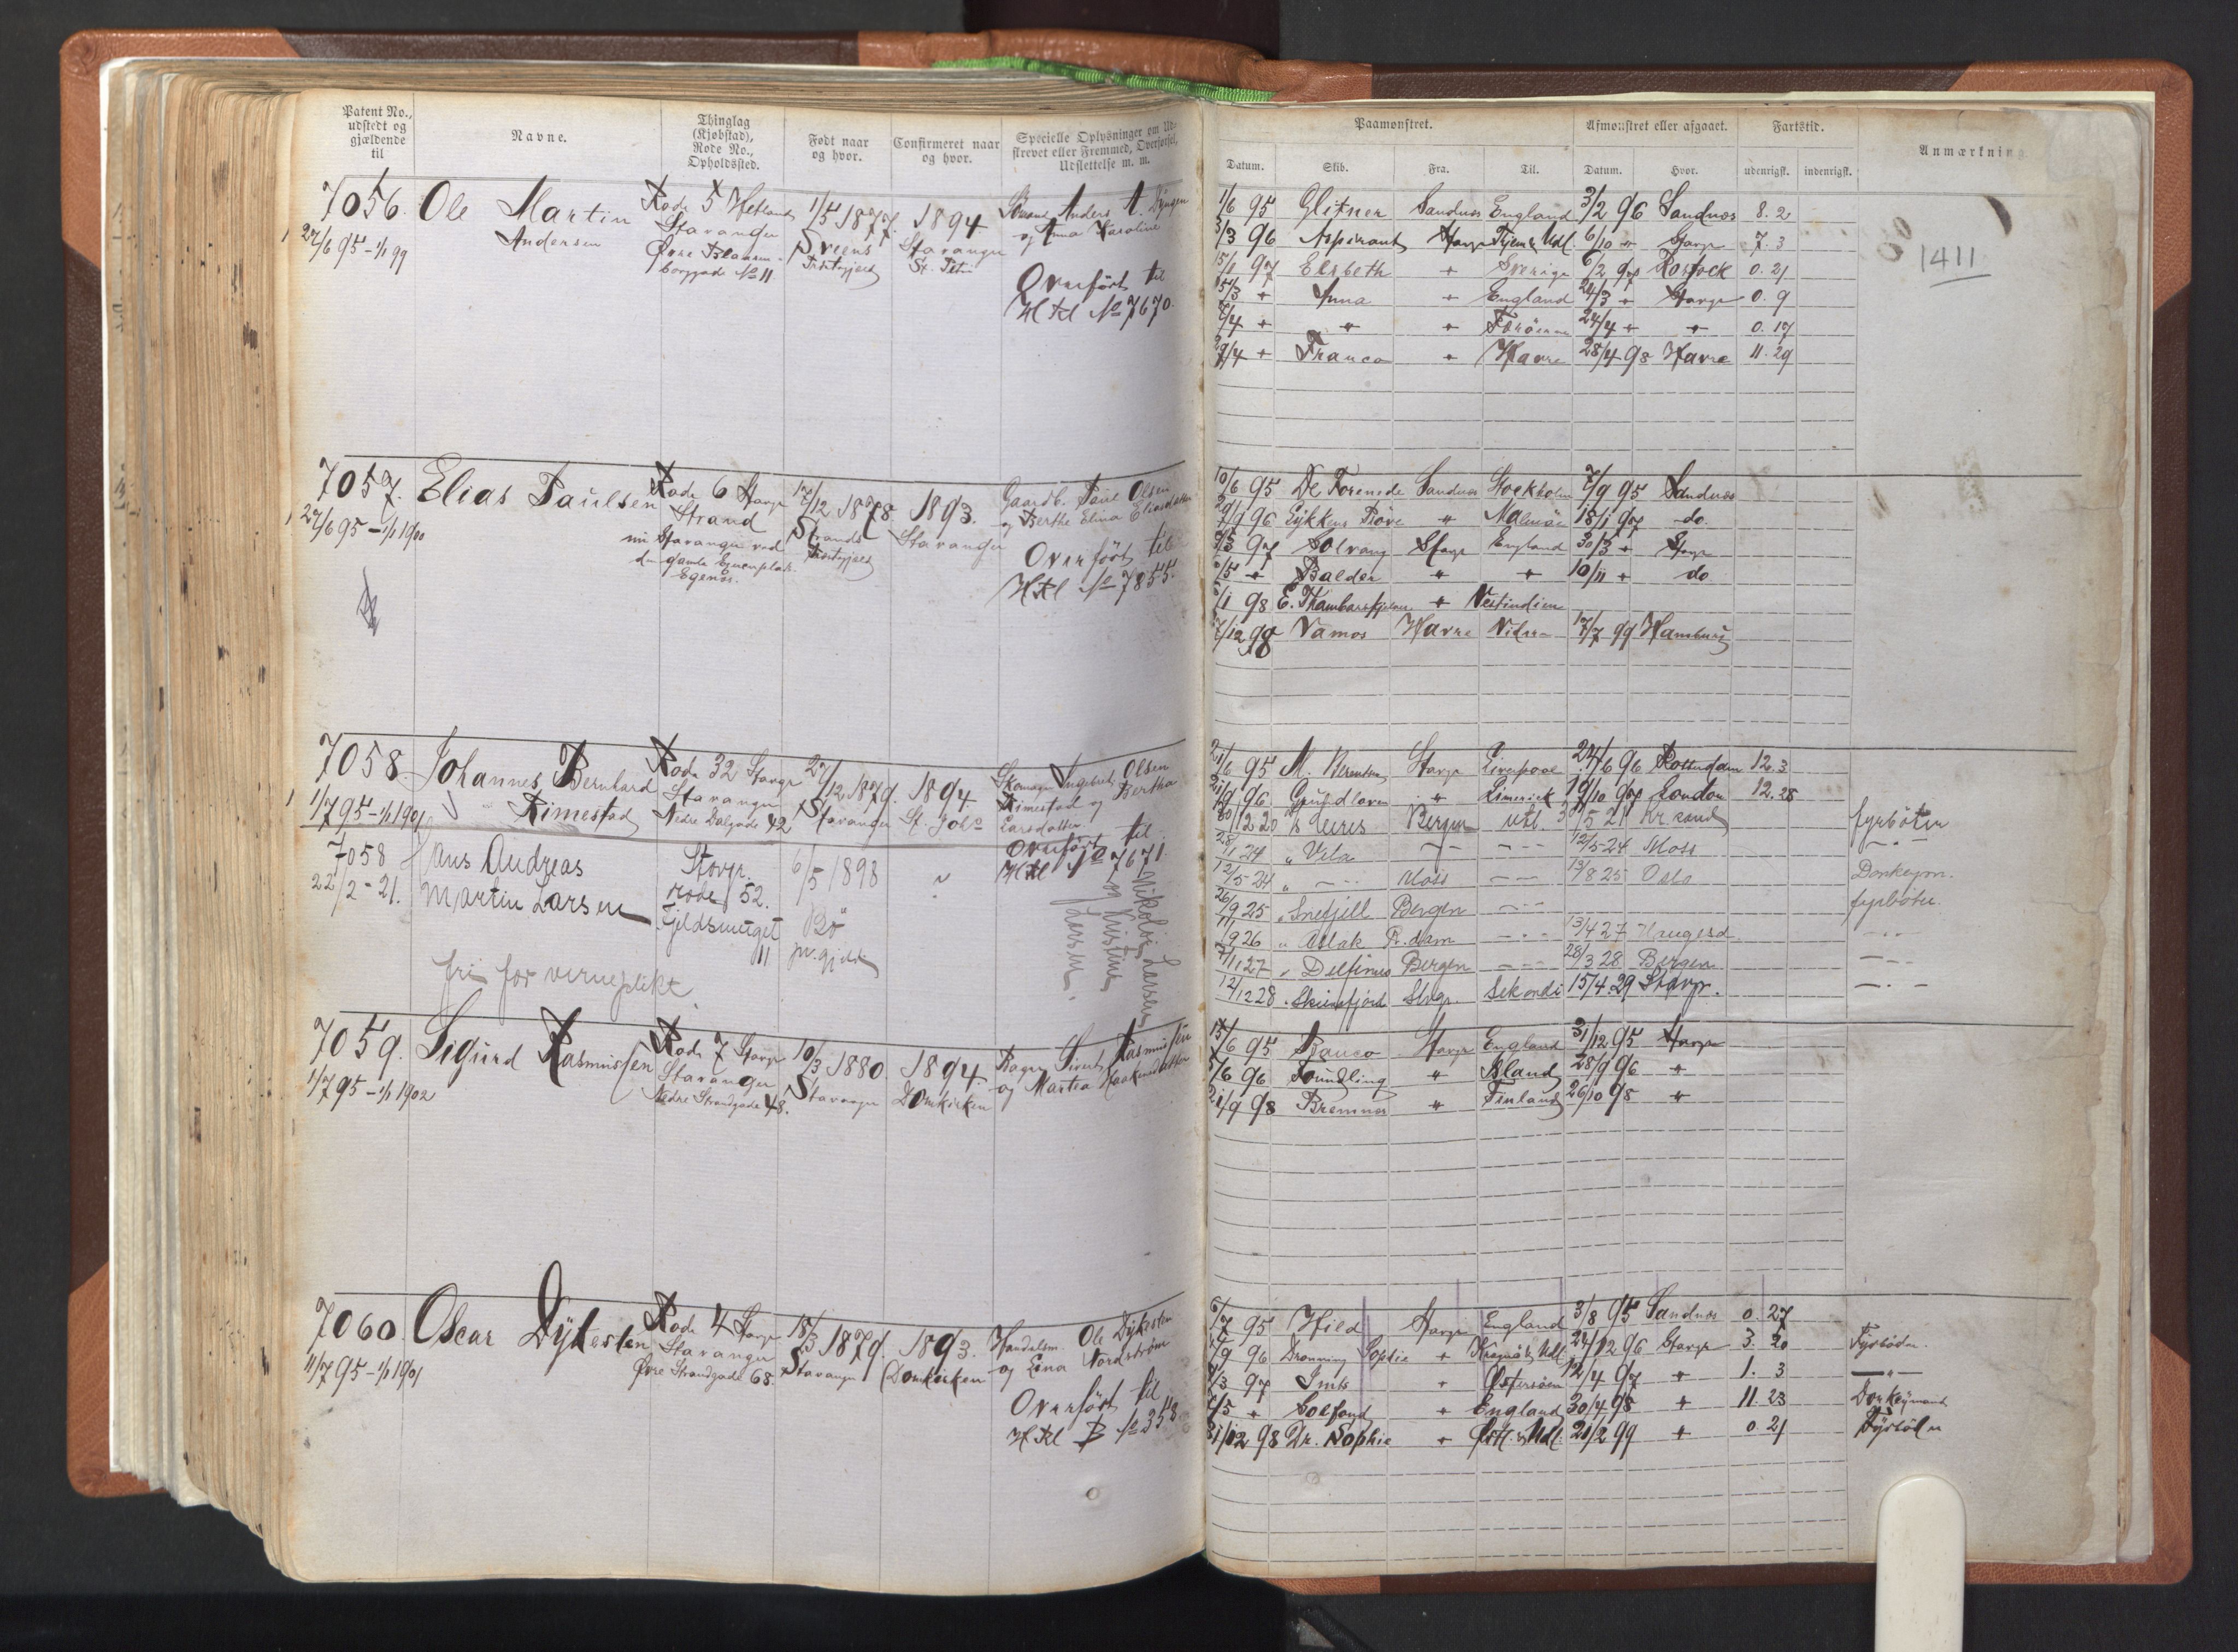 Patent No.,
udstedt og
gjældende
til
Navne.
Thinglag
(Kjøbstad),
Rode No.,
Opholdssted.
Født naar
og hvor.
Confirmeret naar
og hvor.
Specielle Oplysninger om Ud-
skrevet eller Fremmed, Overførsel,
Udslettelse m. m.
7056. Ole Martin Rode 5 Hetland 1/5 1877. 1894 Anders A.
Andersen Stavanger Stavanger og Anna Karoline
27/6 95 - 1/1 99 Øvre Præstegjeld St. Petri
borggade No 11
Overført til
H Rl No 7670.
7057. Elias Paulsen Rode 6 Stavgr 17/12 1878 1893. Gaardb. Paul Olsen
27/6 95 - 1/1 1900 Strand Strands Stavanger og Berthe Elina Eliasdatter
nu Stavanger ved Præstegjeld Overført til
den gamle
Egenæs. H Rl No 7855.
7058. Johannes Bernhard Rode 32 Stavgr 27/12 1879. 1894. Skomager Ingebret Olsen
Rimestad Stavanger Stavanger St. Joh. Rimestad og Bertha
1/7 95 - 1/1 1901 Nedre Dalgade 42 Larsdatter
Overført til
H Rl No 7671.
7058 Hans Andreas Stavgr. 6/5 1898
22/2 - 21. Martin Larsen rode 52. Bø
Fjeldsmuget 11 pr.gjeld
Nikolai Larsen
og Kristine
Larsen.
fri for verneplikt
7059. Sigurd Rasmussen Rode 7 Stavgr 10/3 1880. 1894. Bager Sivert Rasmussen
1/7 95 - 1/1 1902 Stavanger Stavanger Domkirken og Martha Haakonsdatter
Nedre Strandgade 48.
7060 Oscar Dÿkesten Rode 4 Stavgr 18/3 1879. 1893. Handelsm. Ole Dykesten
11/7 95 - 1/1 1901 Stavanger Stavanger Domkirken og Elina Nordstrøm
Øvre Strandgade 68.
Overført til
H Rl B No 358
Paamønstret.
Afmønstret eller afgaaet.
Fartstid.
Anmærkning
Datum. Skib. Fra. Til. Datum. Hvor. udenrigsk. indenrigsk.
1/6 95 Glitner Sandnæs England 3/2 96 Sandnæs 8. 2
3/3 96 Aspirant Stavgr Hjem & Udl. 6/10 " Stavgr 7. 3
1411
15/1 97 Elsbeth " Sverige 6/2 97 Rostock 0. 21
15/3 " Anna " England 24/3 " Stavgr 0. 9
7/4 " " " Færøerne 24/4 " " 0. 17
29/4 " Franco " Havre 28/4 98 Havre 11. 29
10/6 95 De Forenede Sandnæs Stockholm 7/9 95 Sandnæs
29/9 96 Lykkens Prøve " Malmö 18/1 97 do.
97 Solvang Stavgr England 30/3 " Stavgr
/5 " Balder " " 10/11 " do
/1 98 E. Thambarskjelver " Vestindien
7/12 98 Vamos Havre Vidre 17/7 99 Hamburg
21/6 95 M. Berentsen Stavgr Liverpool 24/6 96 Rotterdam 12. 3
21/9 96. Grundloven " Limerick 19/10 97 London 12. 28
30/12 20 Ceres Bergen utl. 3/5 21 Kr.sand fyrbøter
28/1 24 " Vela - " - - - - 12/5-24 Moss - " -
12/5-24 " - " - Moss - - 13/8 25 Oslo Donkeym.
26/9 25 " Snefjell Bergen - " - fyrbøter.
11/9 26 " Aslak R.dam - " - 13/4 27 Haugesd. - " -
7/11 27 " Delfinus Bergen - - 28/3 28 Bergen - " -
12/12 28 " Skiensfjord Stvgr. Sekondi 15/4.29 Stavgr. - " -
15/6 95 Franco Stavgr England 31/12 95 Stavgr
5/6 96 Foundling " Island 28/9 96 "
21/9 98 Bremnæs " Finland 26/10 98 "
6/7 95 Hild Stavgr England 3/8 95 Sandnæs 0. 27
/9 96 Dronning Sophie " 24/12 96 Stavgr 3. 20 Fyrbøder.
/3 97 " Østersøen 12/4 97 " 1. 3 - " -
7/5 " Solfond " England 30/4 98 " 11. 23 Donkeymand
31/12 98 Dr. Sophie " Østl. & Udl. 21/2 99 " 0 21 Fyrbøder